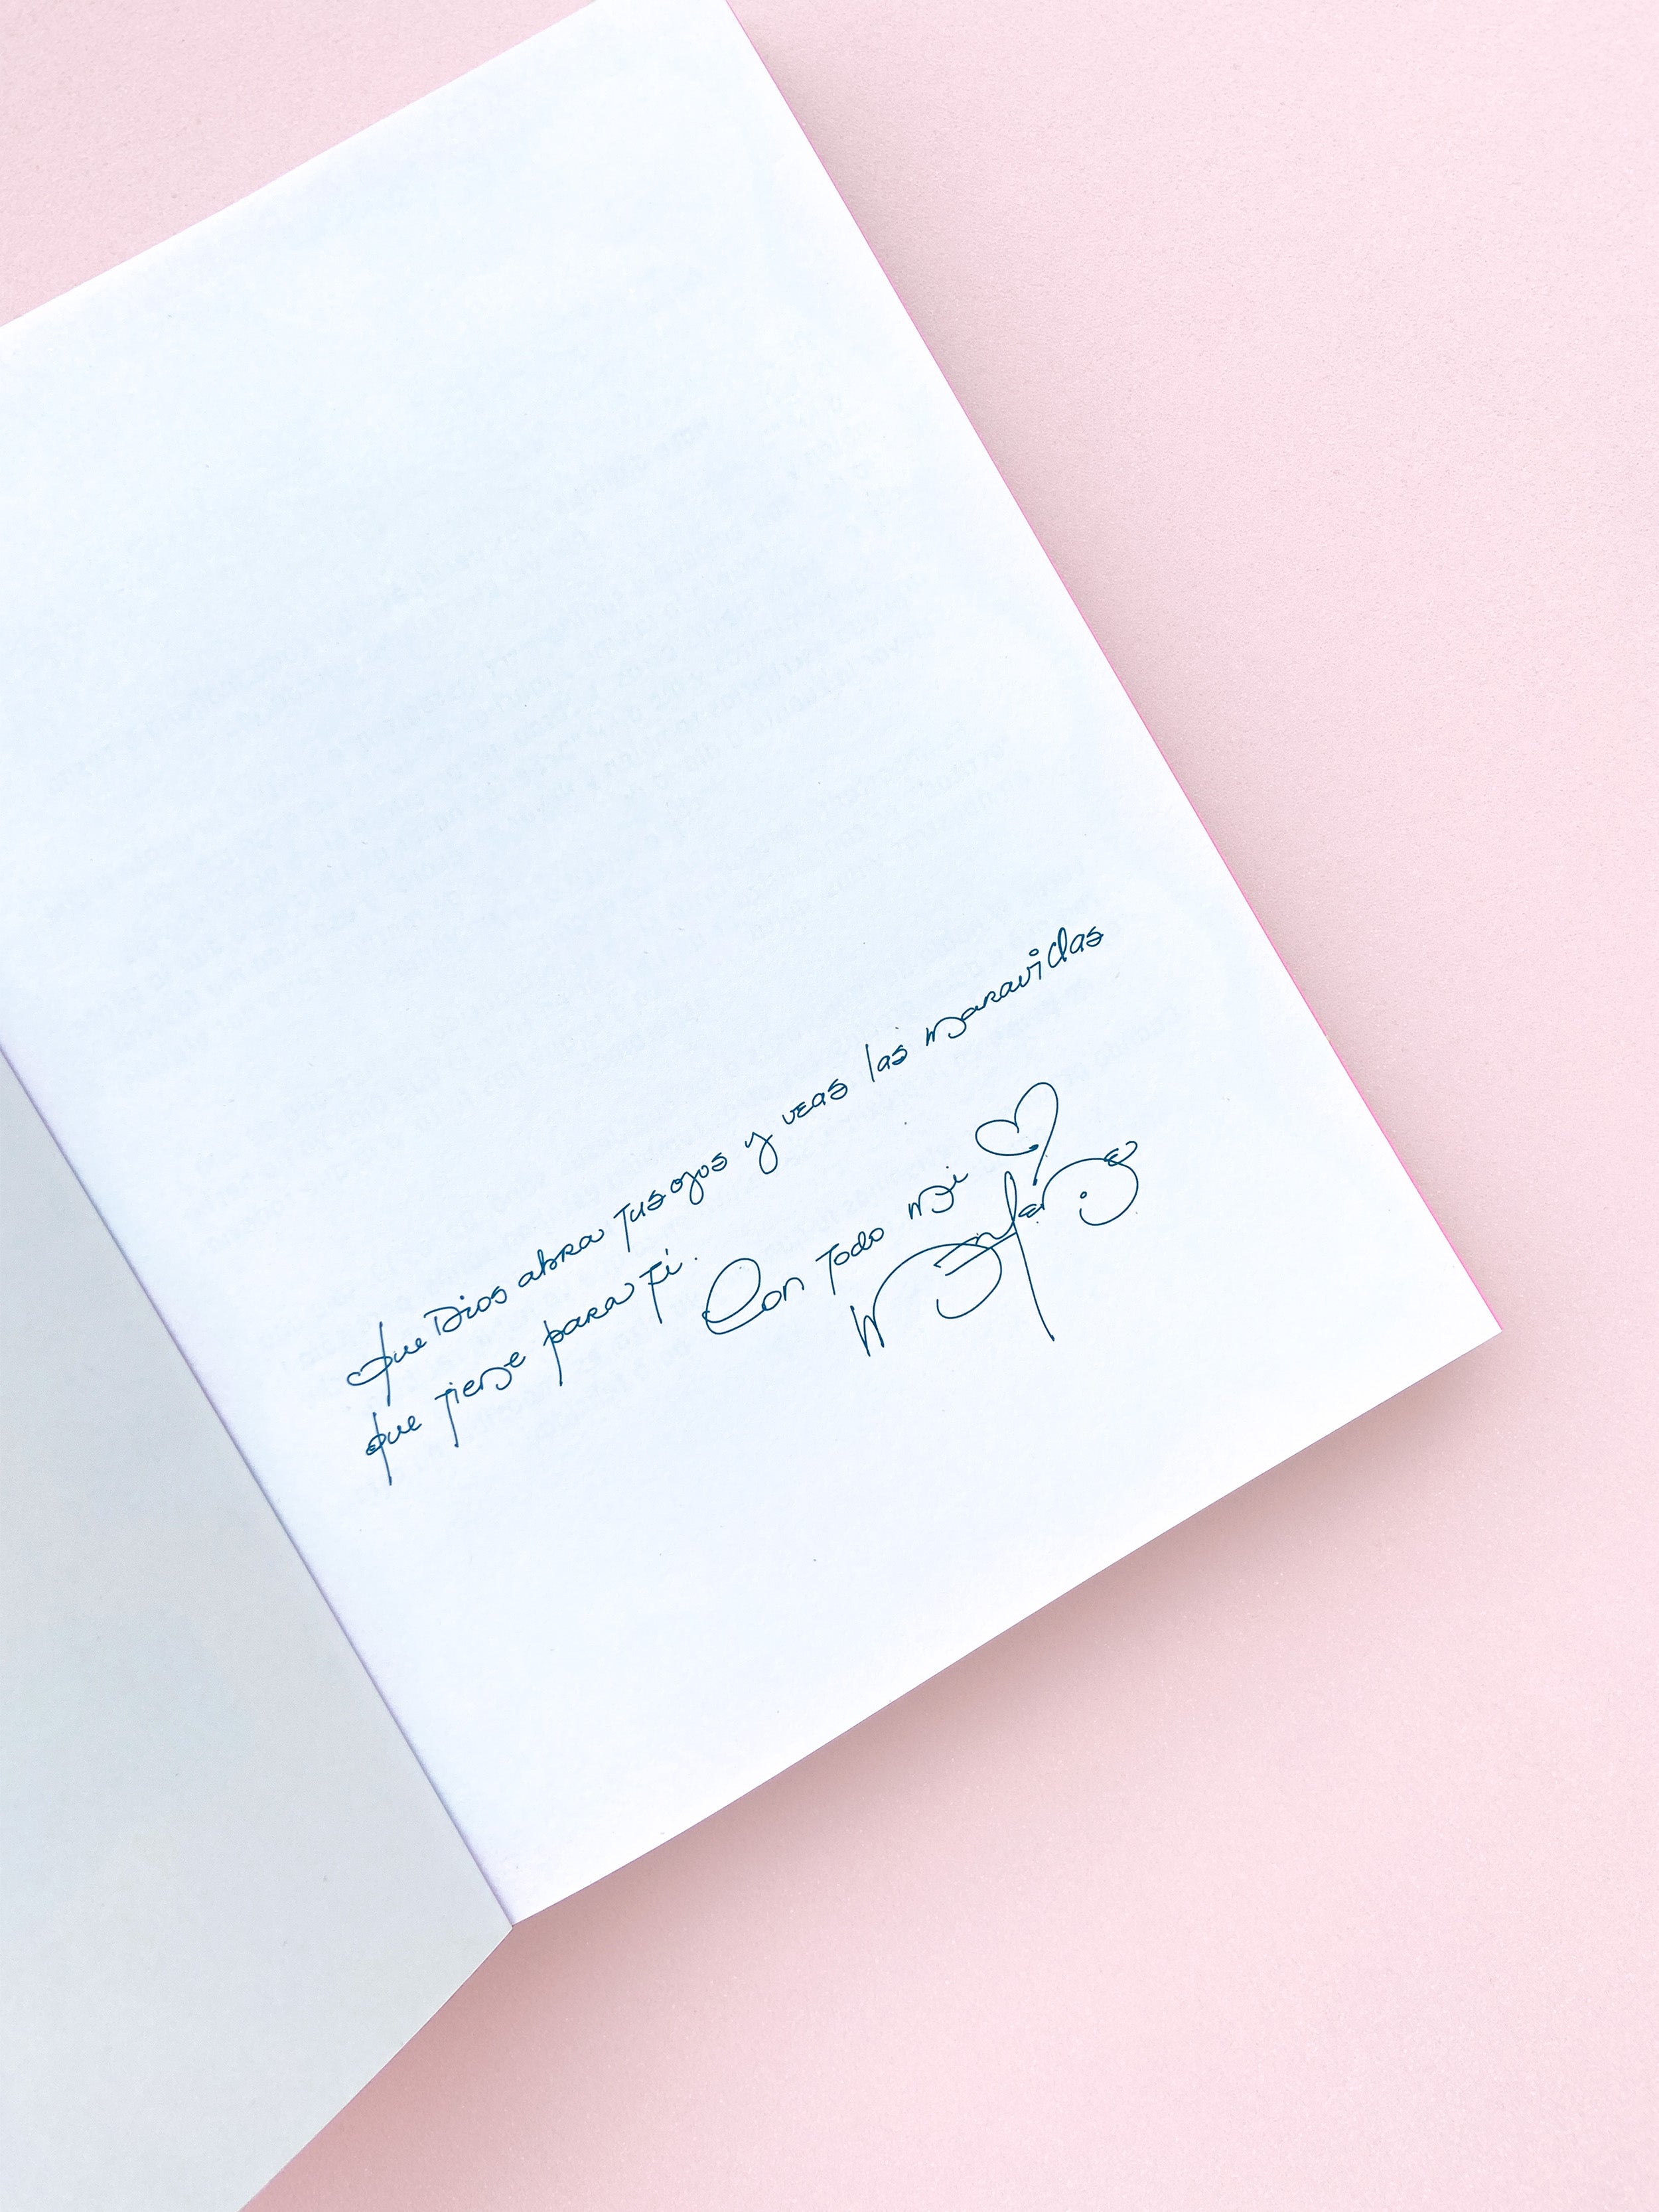 Que Dios abra tus ojos y veas las maravillas
que tiene para ti. Con todo mi